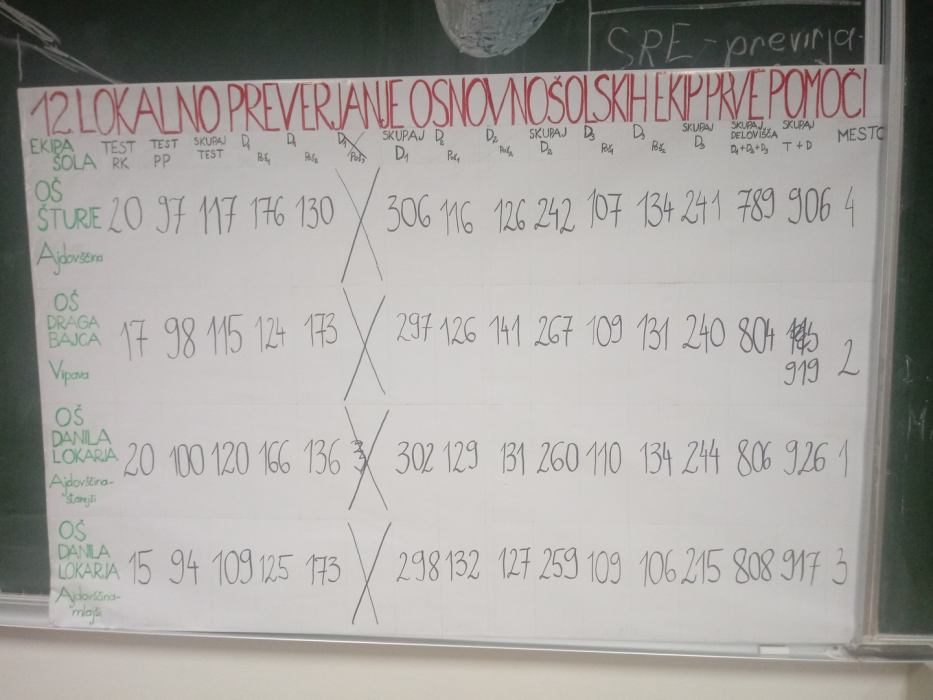 SRE - previrja
12. LOKALNO PREVERJANJE OSNOVNOŠOLSKIH EKIP PRVE POMOČI
EKIPA ŠOLA TEST RK TEST PP SKUPAJ TEST D1 Poš1 D1 Poš2 D1 Poš3 SKUPAJ D1 D2 Poš1 D2 Poš2 SKUPAJ D2 D3 Poš1 D3 Poš2 SKUPAJ D3 SKUPAJ DELOVIŠČA D1+D2+D3 SKUPAJ T+D MESTO
OŠ
ŠTURJE 20 97 117 176 130 306 116 126 242 107 134 241 789 906 4
Ajdovščina
OŠ
DRAGA
BAJCA 17 98 115 124 173 297 126 141 267 109 131 240 804
Vipava 919 2
OŠ
DANILA
LOKARJA 20 100 120 166 136 302 129 131 260 110 134 244 806 926 1
Ajdovščina-
starejši
OŠ
DANILA
LOKARJA 15 94 109 125 173 298 132 127 259 109 106 215 808 917 3
Ajdovščina-
mlajši